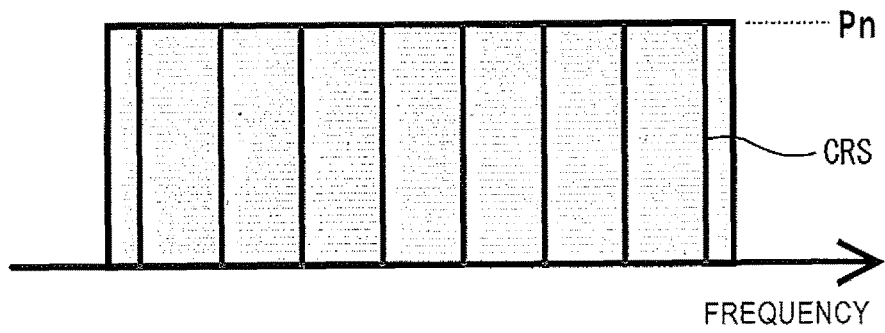 Pn
CRS
FREQUENCY